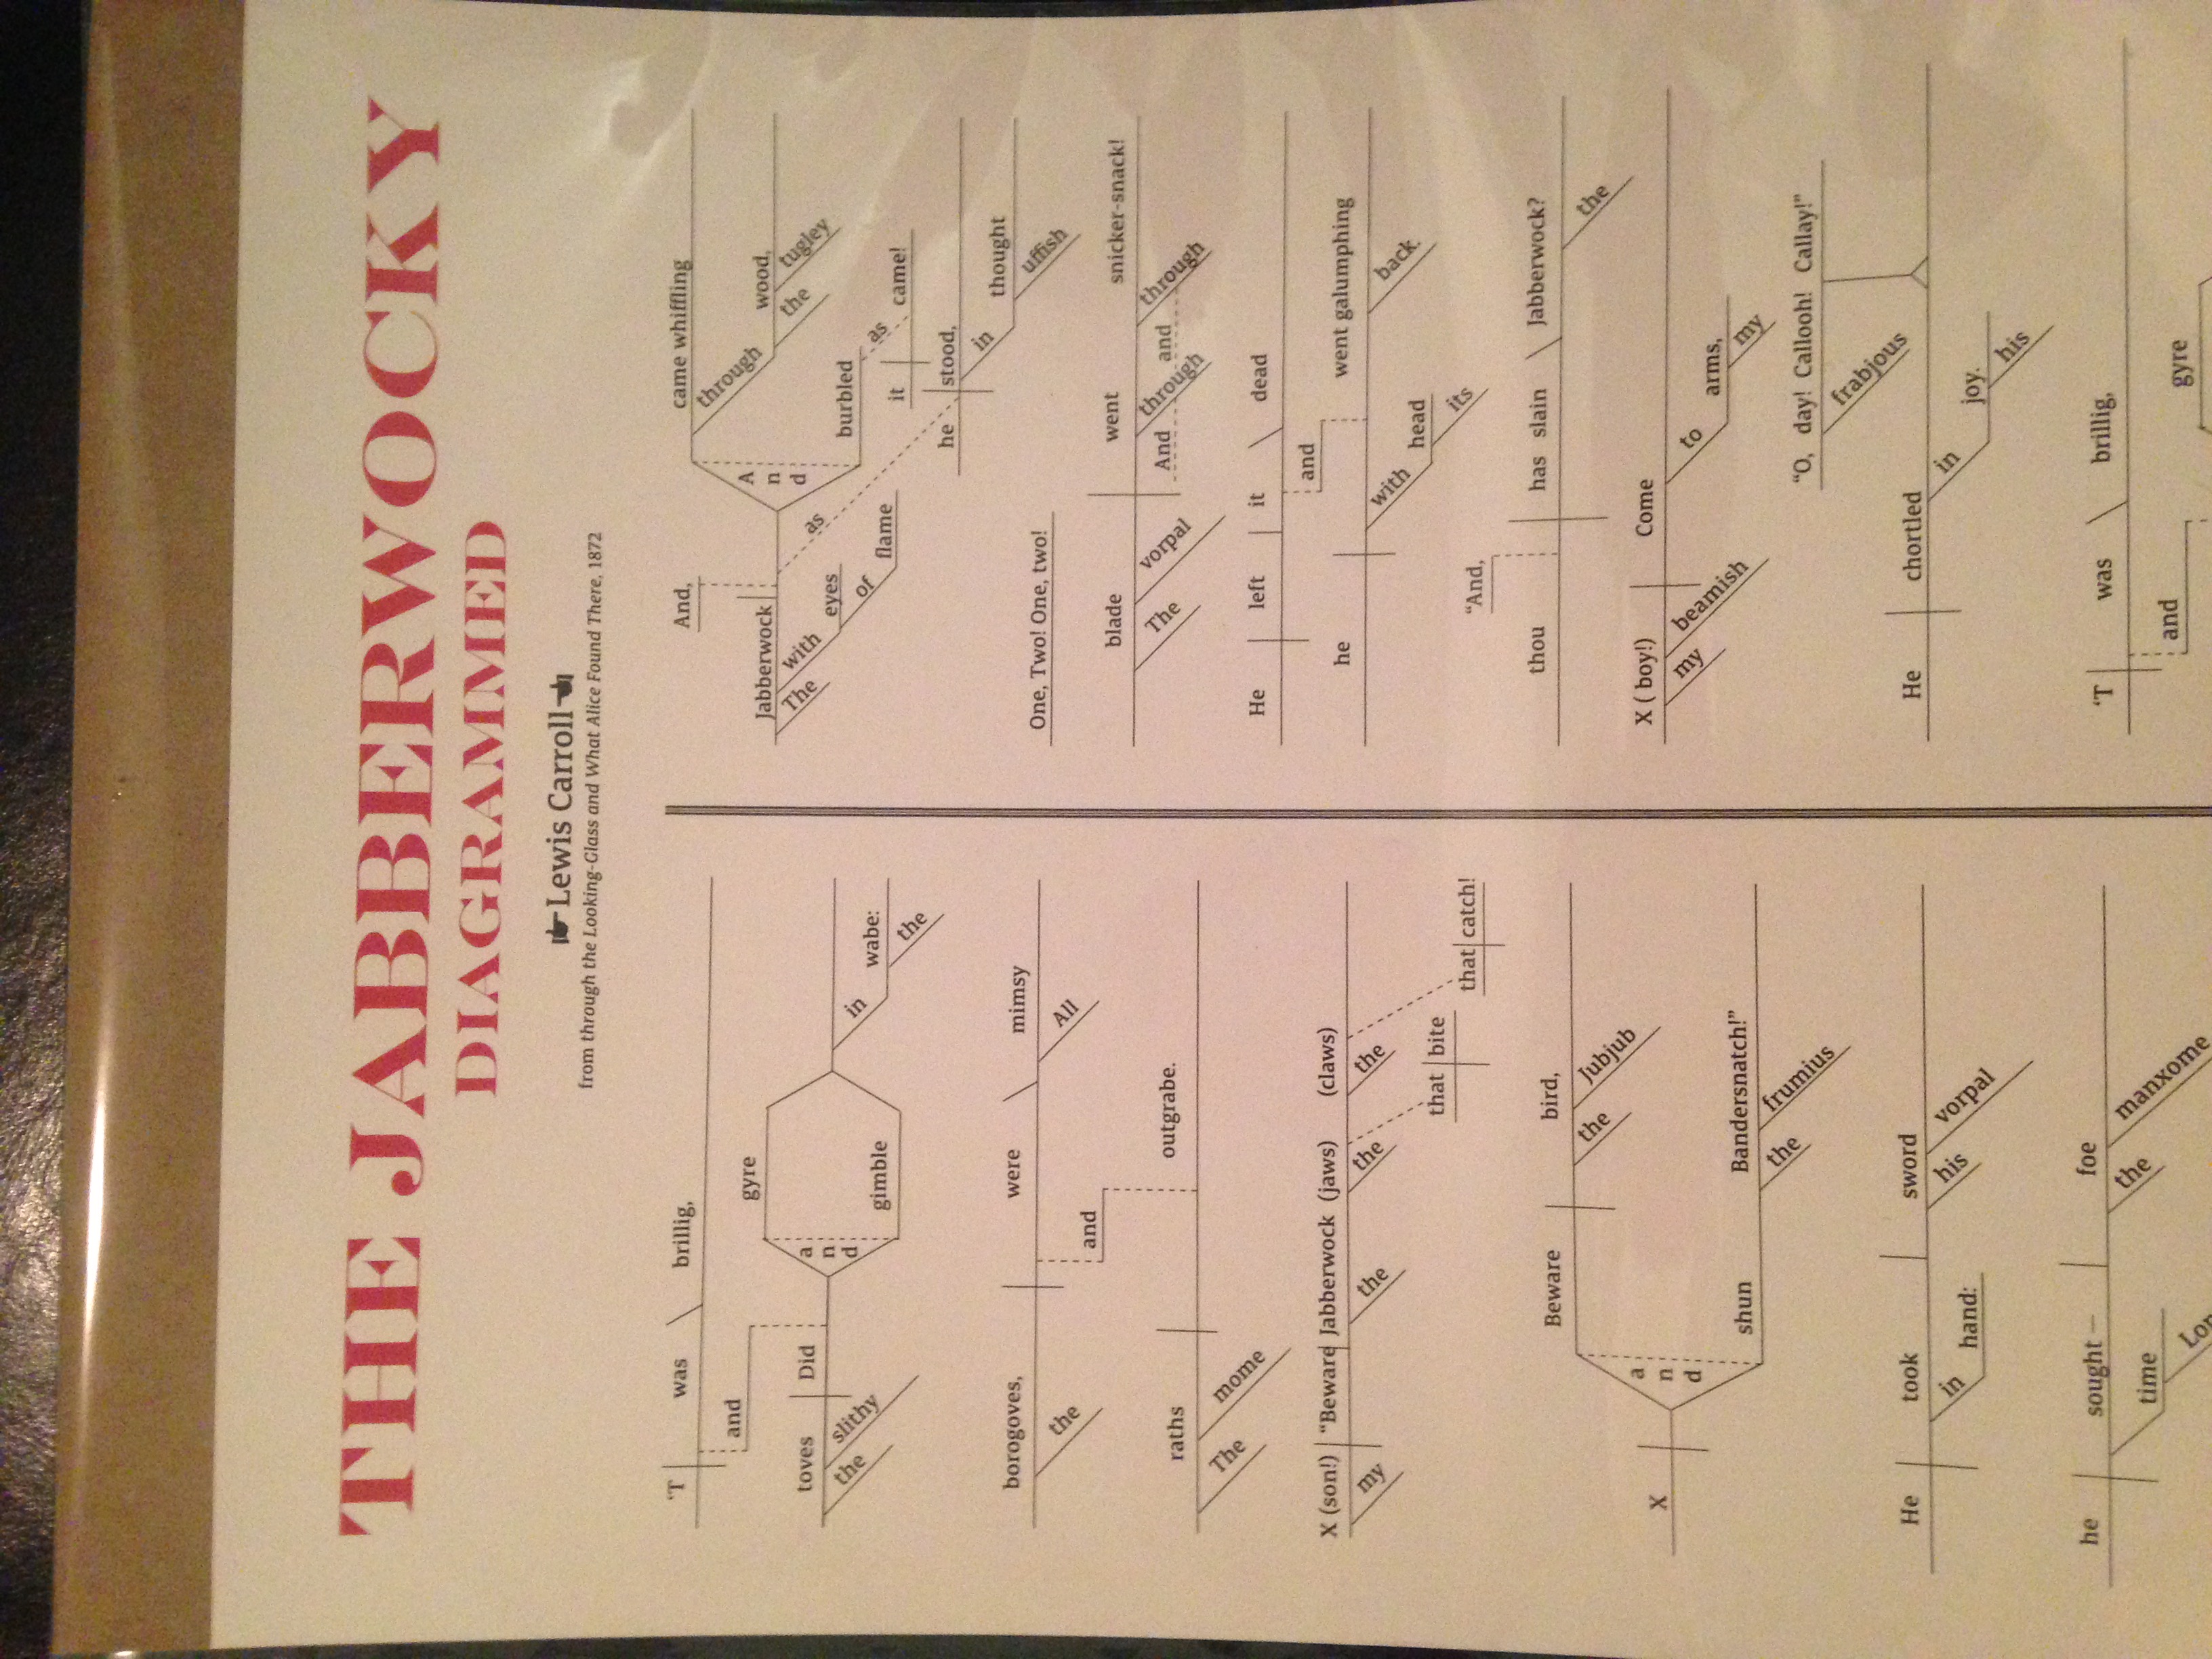 THE JABBERWOCKY
DIAGRAMMED
☛Lewis Carroll☚
from through the Looking-Glass and What Alice Found There, 1872
'T was brillig,
and
gyre
toves Did and in wabe:
the slithy the
gimble
borogoves, were mimsy
the All
and
outgrabe.
raths
The mome
X (son!) "Beware Jabberwock (jaws) (claws)
my the the the
that bite that catch!
Beware bird,
the Jubjub
X and
shun Bandersnatch!"
the frumius
He took sword
in hand: his vorpal
he sought – foe
time the manxome
And, came whiffling
through wood,
the tugley
Jabberwock And
The with eyes as burbled
of flame as
it came!
he stood,
in thought
uffish
One, Two! One, two!
blade went snicker-snack!
The vorpal And through and through
He left it dead
and
he went galumphing
with head back.
its
"And,
thou has slain Jabberwock?
the
X ( boy!) Come
my beamish to arms,
my
"O, day! Callooh! Callay!"
frabjous
He chortled
in joy.
his
'T was brillig,
and
gyre